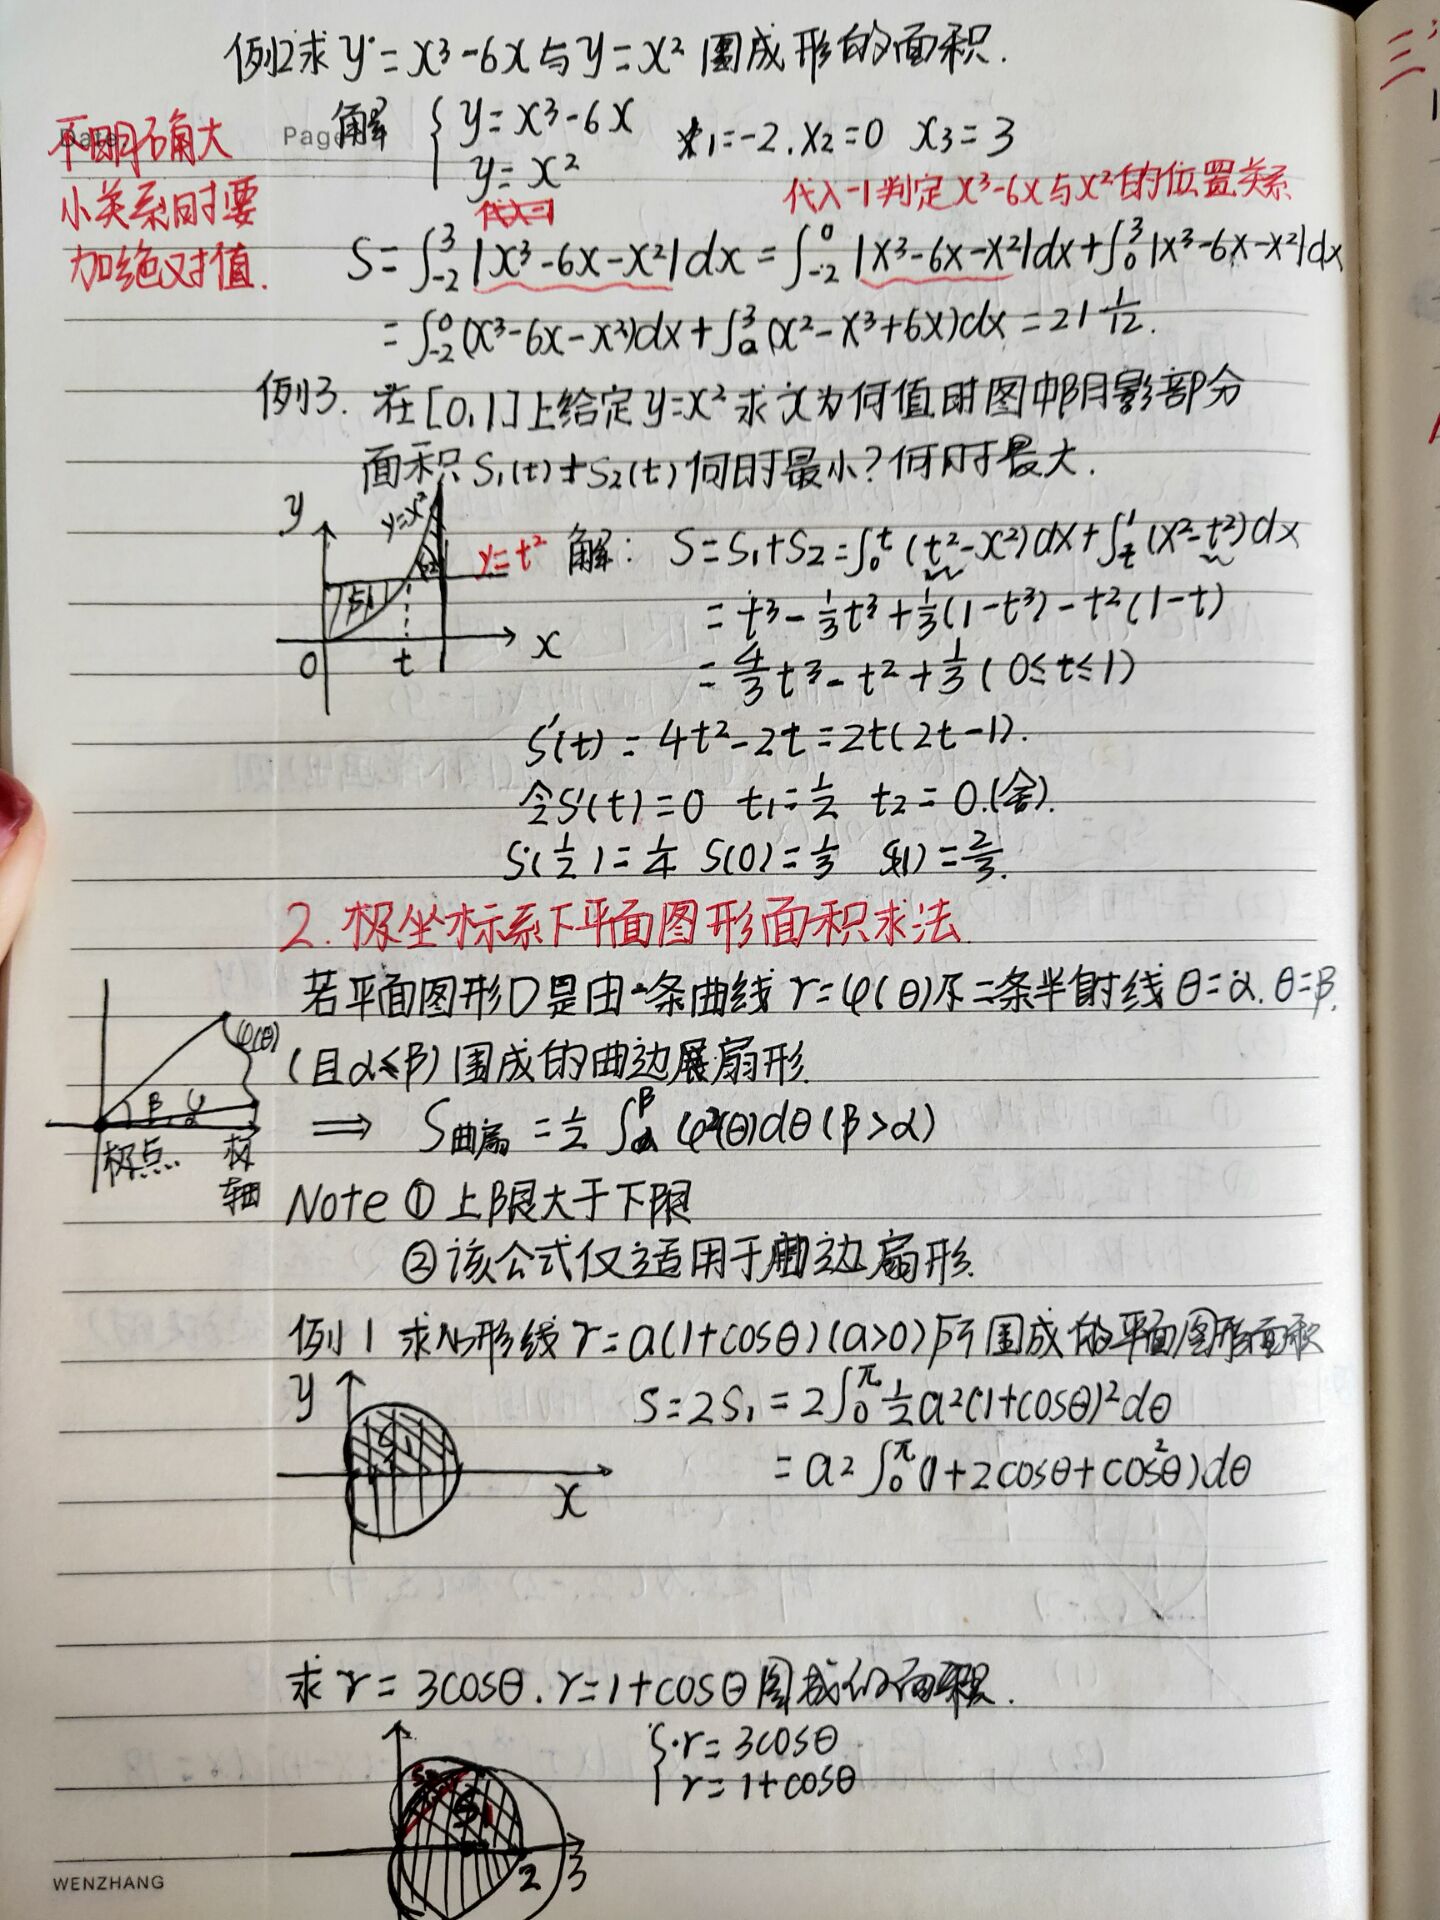 例2求y=x³-6x与y=x²围成形的面积.
Page
解 { y=x³-6x
y=x²
x₁=-2. x₂=0 x₃=3
不明确大
小关系时要
加绝对值.
代入-1判定x³-6x与x²的位置关系
S=∫₋₂³|x³-6x-x²|dx=∫₋₂⁰|x³-6x-x²|dx+∫₀³|x³-6x-x²|dx
=∫₋₂⁰(x³-6x-x²)dx+∫₀³(x²-x³+6x)dx=21 1/12.
例3. 在[0,1]上给定y=x²求t为何值时图中阴影部分
面积S₁(t)+S₂(t)何时最小?何时最大.
y
y=x²
y=t²
S1
S2
0 t x
解: S=S₁+S₂=∫₀ᵗ(t²-x²)dx+∫ₜ¹(x²-t²)dx
=t³-1/3t³+1/3(1-t³)-t²(1-t)
=4/3t³-t²+1/3(0≤t≤1)
S'(t)=4t²-2t=2t(2t-1).
令S'(t)=0 t₁=1/2 t₂=0.(舍).
S(1/2)=1/4 S(0)=1/3 S(1)=2/3.
2.极坐标系下平面图形面积求法
若平面图形D是由一条曲线r=φ(θ)及二条半射线θ=α.θ=β.
(且α≤β)围成的曲边扇形.
φ(θ)
β α
极点.
极
轴
⇒ S曲扇=1/2∫αᵝφ²(θ)dθ(β>α)
Note ①上限大于下限
②该公式仅适用于曲边扇形.
例1 求心形线r=a(1+cosθ)(a>0)所围成的平面图形面积
y
S1
x
S=2S₁=2∫₀^π 1/2a²(1+cosθ)²dθ
=a²∫₀^π(1+2cosθ+cos²θ)dθ
求r=3cosθ.r=1+cosθ围成的面积.
{ r=3cosθ
r=1+cosθ
2 3
WENZHANG